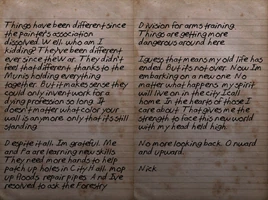 Things have been different since
the painter's association
dissolved. Well, who am I
kidding? They've been different
ever since the War. They didn't
feel that different, thanks to the
Munis holding everything
together. But it makes sense they
could only invent work for a
dying profession so long. It
doesn't matter what color your
wall is anymore, only that it's still
standing.
Despite it all, I'm grateful. Me
and Pa are learning new skills.
They need more hands to help
patch up holes in City Hall, mop
up floods, repair pipes. And I've
resolved to ask the Forestry
Division for arms training.
Things are getting more
dangerous around here.
I guess that means my old life has
ended. But it's not over. Now, I'm
embarking on a new one. No
matter what happens, my spirit
will live on in the city I call
home. In the hearts of those I
care about. That gives me the
strength to face this new world
with my head held high.
No more looking back. Onward
and upward.
Nick